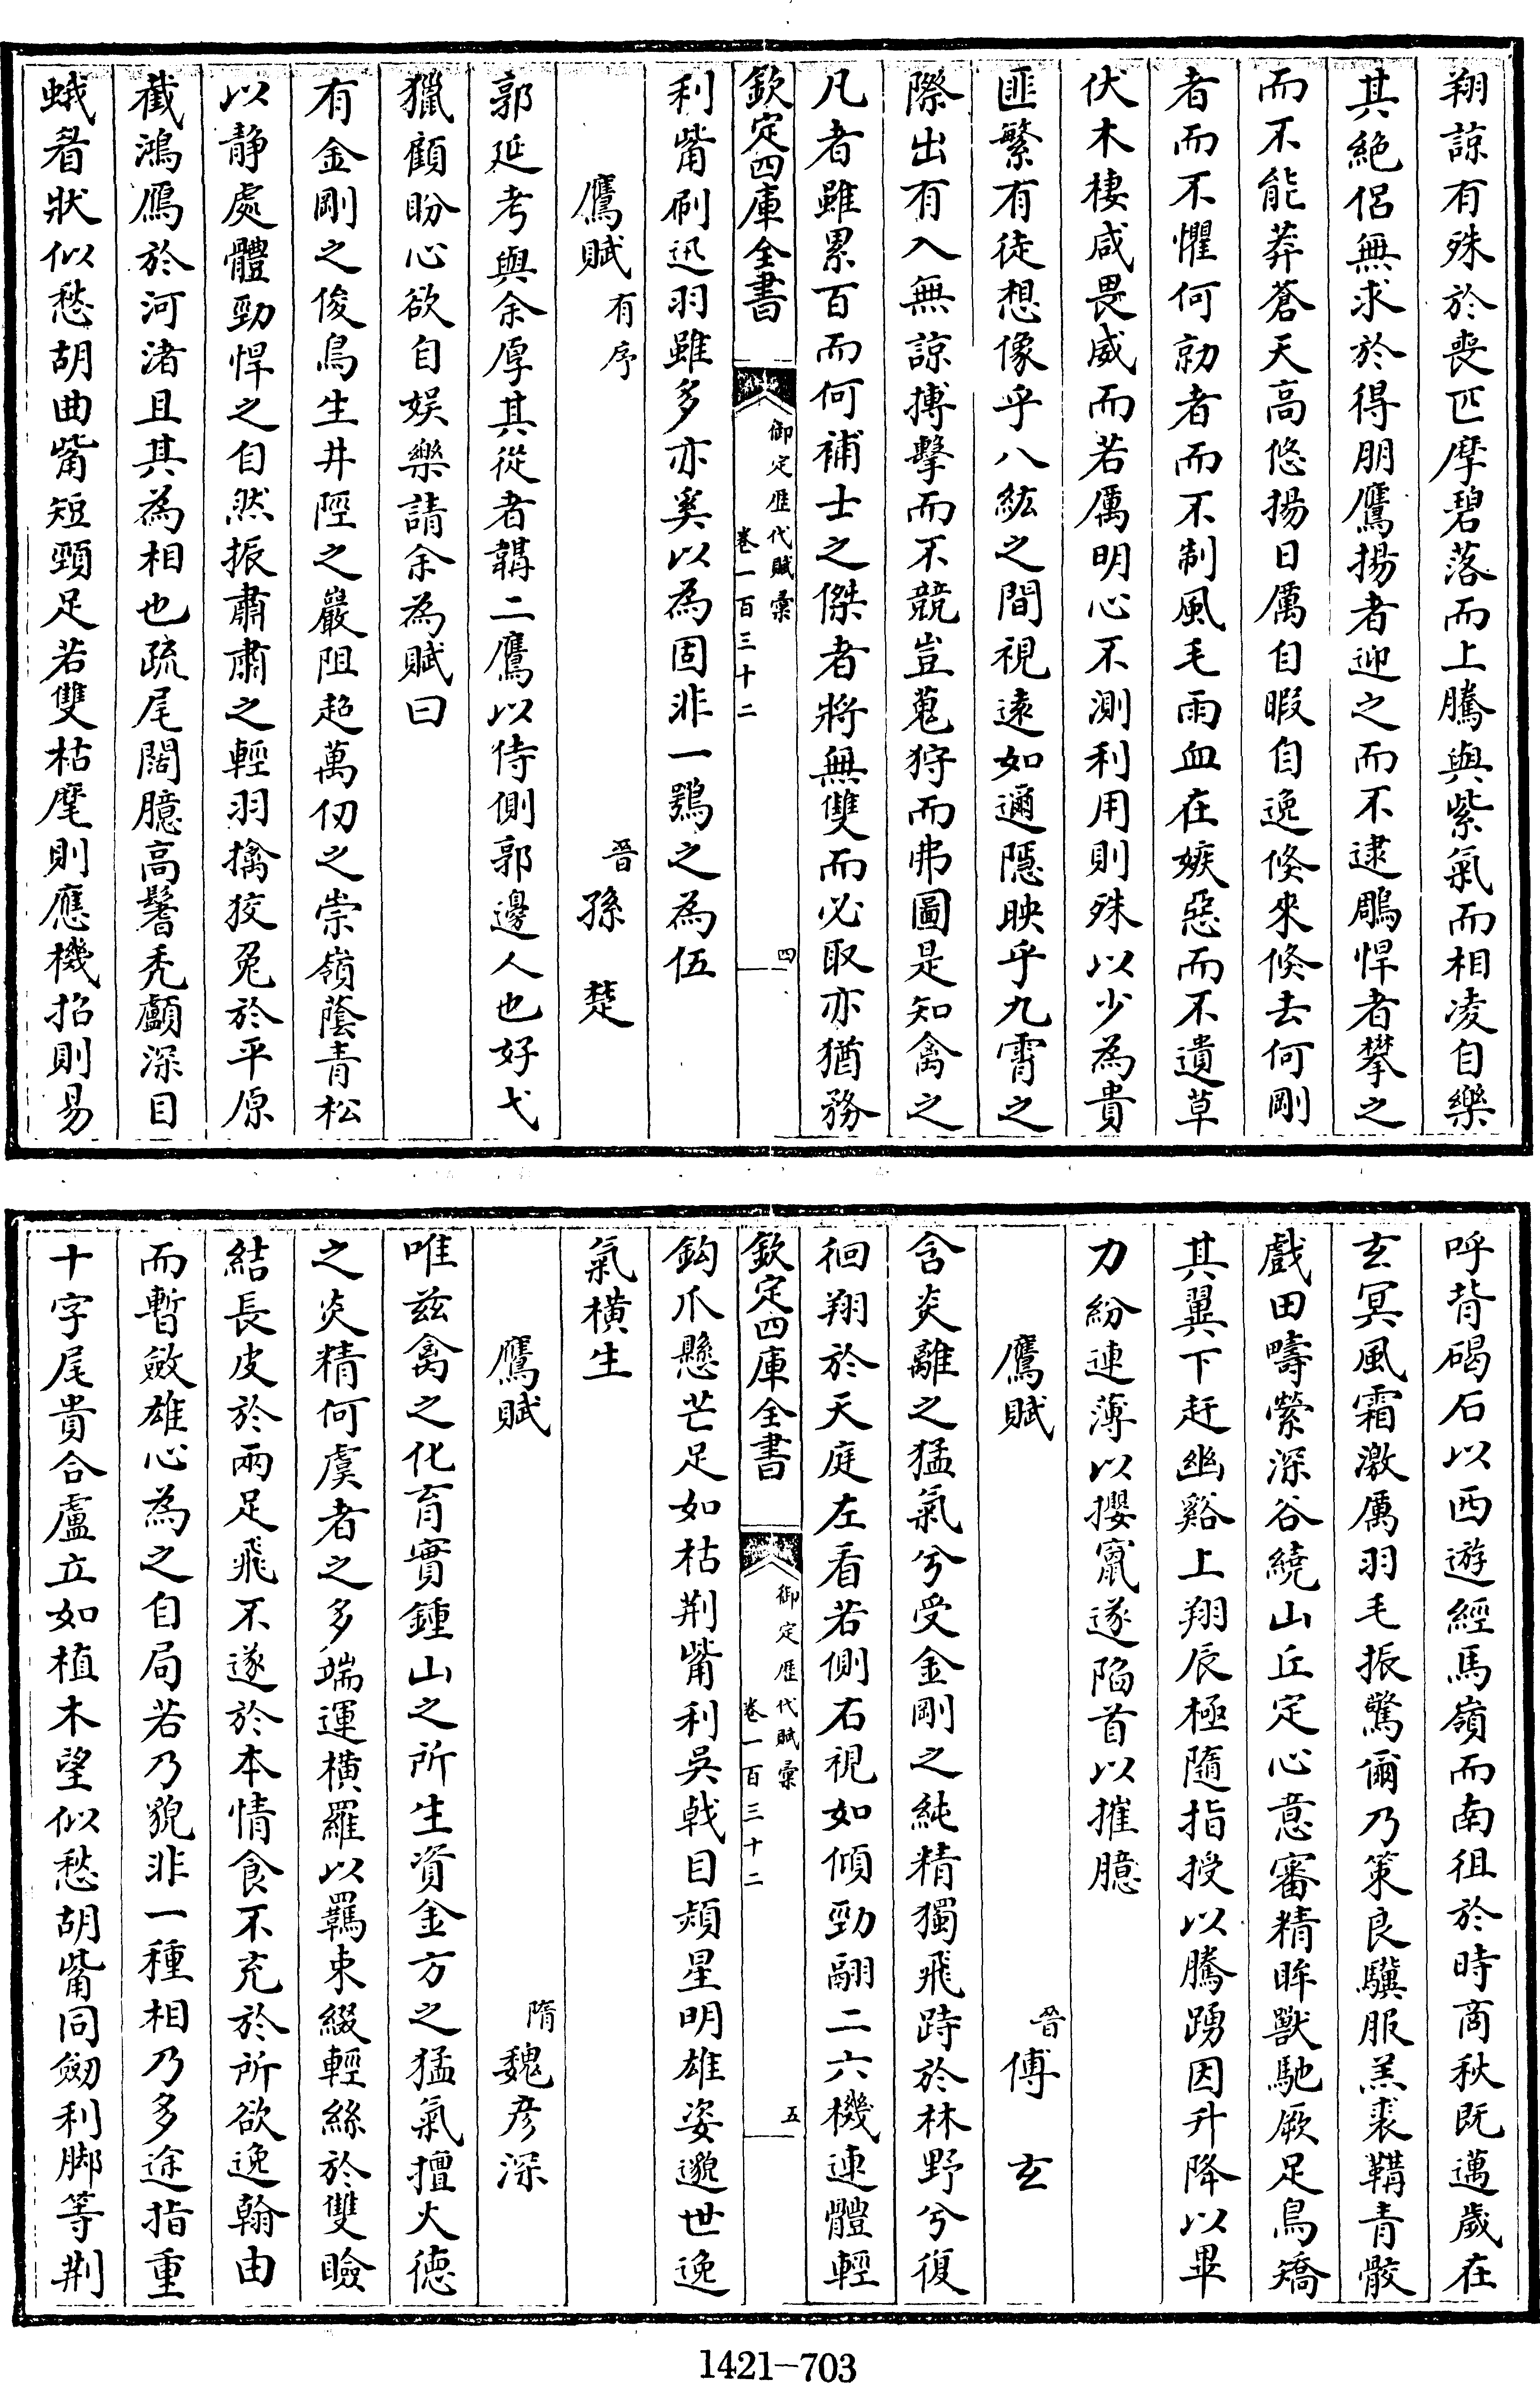 翔諒有殊於喪匹摩碧落而上騰與紫氣而相凌自樂
其絶侶無求於得朋鷹揚者迎之而不逮鵰悍者攀之
而不能莽蒼天高悠揚日厲自暇自逸倏來倏去何剛
者而不懼何勍者而不制風毛雨血在嫉惡而不遺草
伏木棲咸畏威而若厲明心不測利用則殊以少為貴
匪繁有徒想像乎八紘之間視遠如邇隱映乎九霄之
際出有入無諒搏擊而不競豈蒐狩而弗圖是知禽之
凡者雖累百而何補士之傑者將無雙而必取亦猶務
欽定四庫全書
御定歷代賦彙
卷一百三十二
四
利觜刷迅羽雖多亦奚以為固非一鶚之為伍
鷹賦有序
晉孫楚
郭延考與余厚其從者韝二鷹以侍側郭邊人也好弋
獵顧盼心欲自娛樂請余為賦曰
有金剛之俊鳥生井陘之巖阻超萬仞之崇嶺蔭青松
以静處體勁悍之自然振肅肅之輕羽擒狡兔於平原
截鴻鴈於河渚且其為相也疏尾闊臆高鬐秃顱深目
蛾眉狀似愁胡曲觜短頸足若雙枯麾則應機招則易
呼背碣石以西遊經馬嶺而南徂於時商秋既邁歲在
玄冥風霜激厲羽毛振驚爾乃策良驥服羔裘韝青骹
戲田疇縈深谷繞山丘定心意審精眸獸馳厥足鳥矯
其翼下赶幽谿上翔辰極隨指授以騰踴因升降以畢
力紛連薄以攖窠遂陷首以摧臆
鷹賦
晉傅玄
含炎離之猛氣兮受金剛之純精獨飛跱於林野兮復
徊翔於天庭左看若側右視如傾勁翮二六機連體輕
欽定四庫全書
御定歷代賦彙
卷一百三十二
五
鈎爪懸芒足如枯荆觜利吳戟目頻星明雄姿邈世逸
氣橫生
鷹賦
隋魏彦深
唯兹禽之化育實鍾山之所生資金方之猛氣擅火德
之炎精何虞者之多端運橫羅以羈束綴輕絲於雙瞼
結長皮於兩足飛不遂於本情食不充於所欲逸翰由
而暫斂雄心為之自局若乃貌非一種相乃多途指重
十字尾貴合盧立如植木望似愁胡觜同劒利脚等荆
1421-703